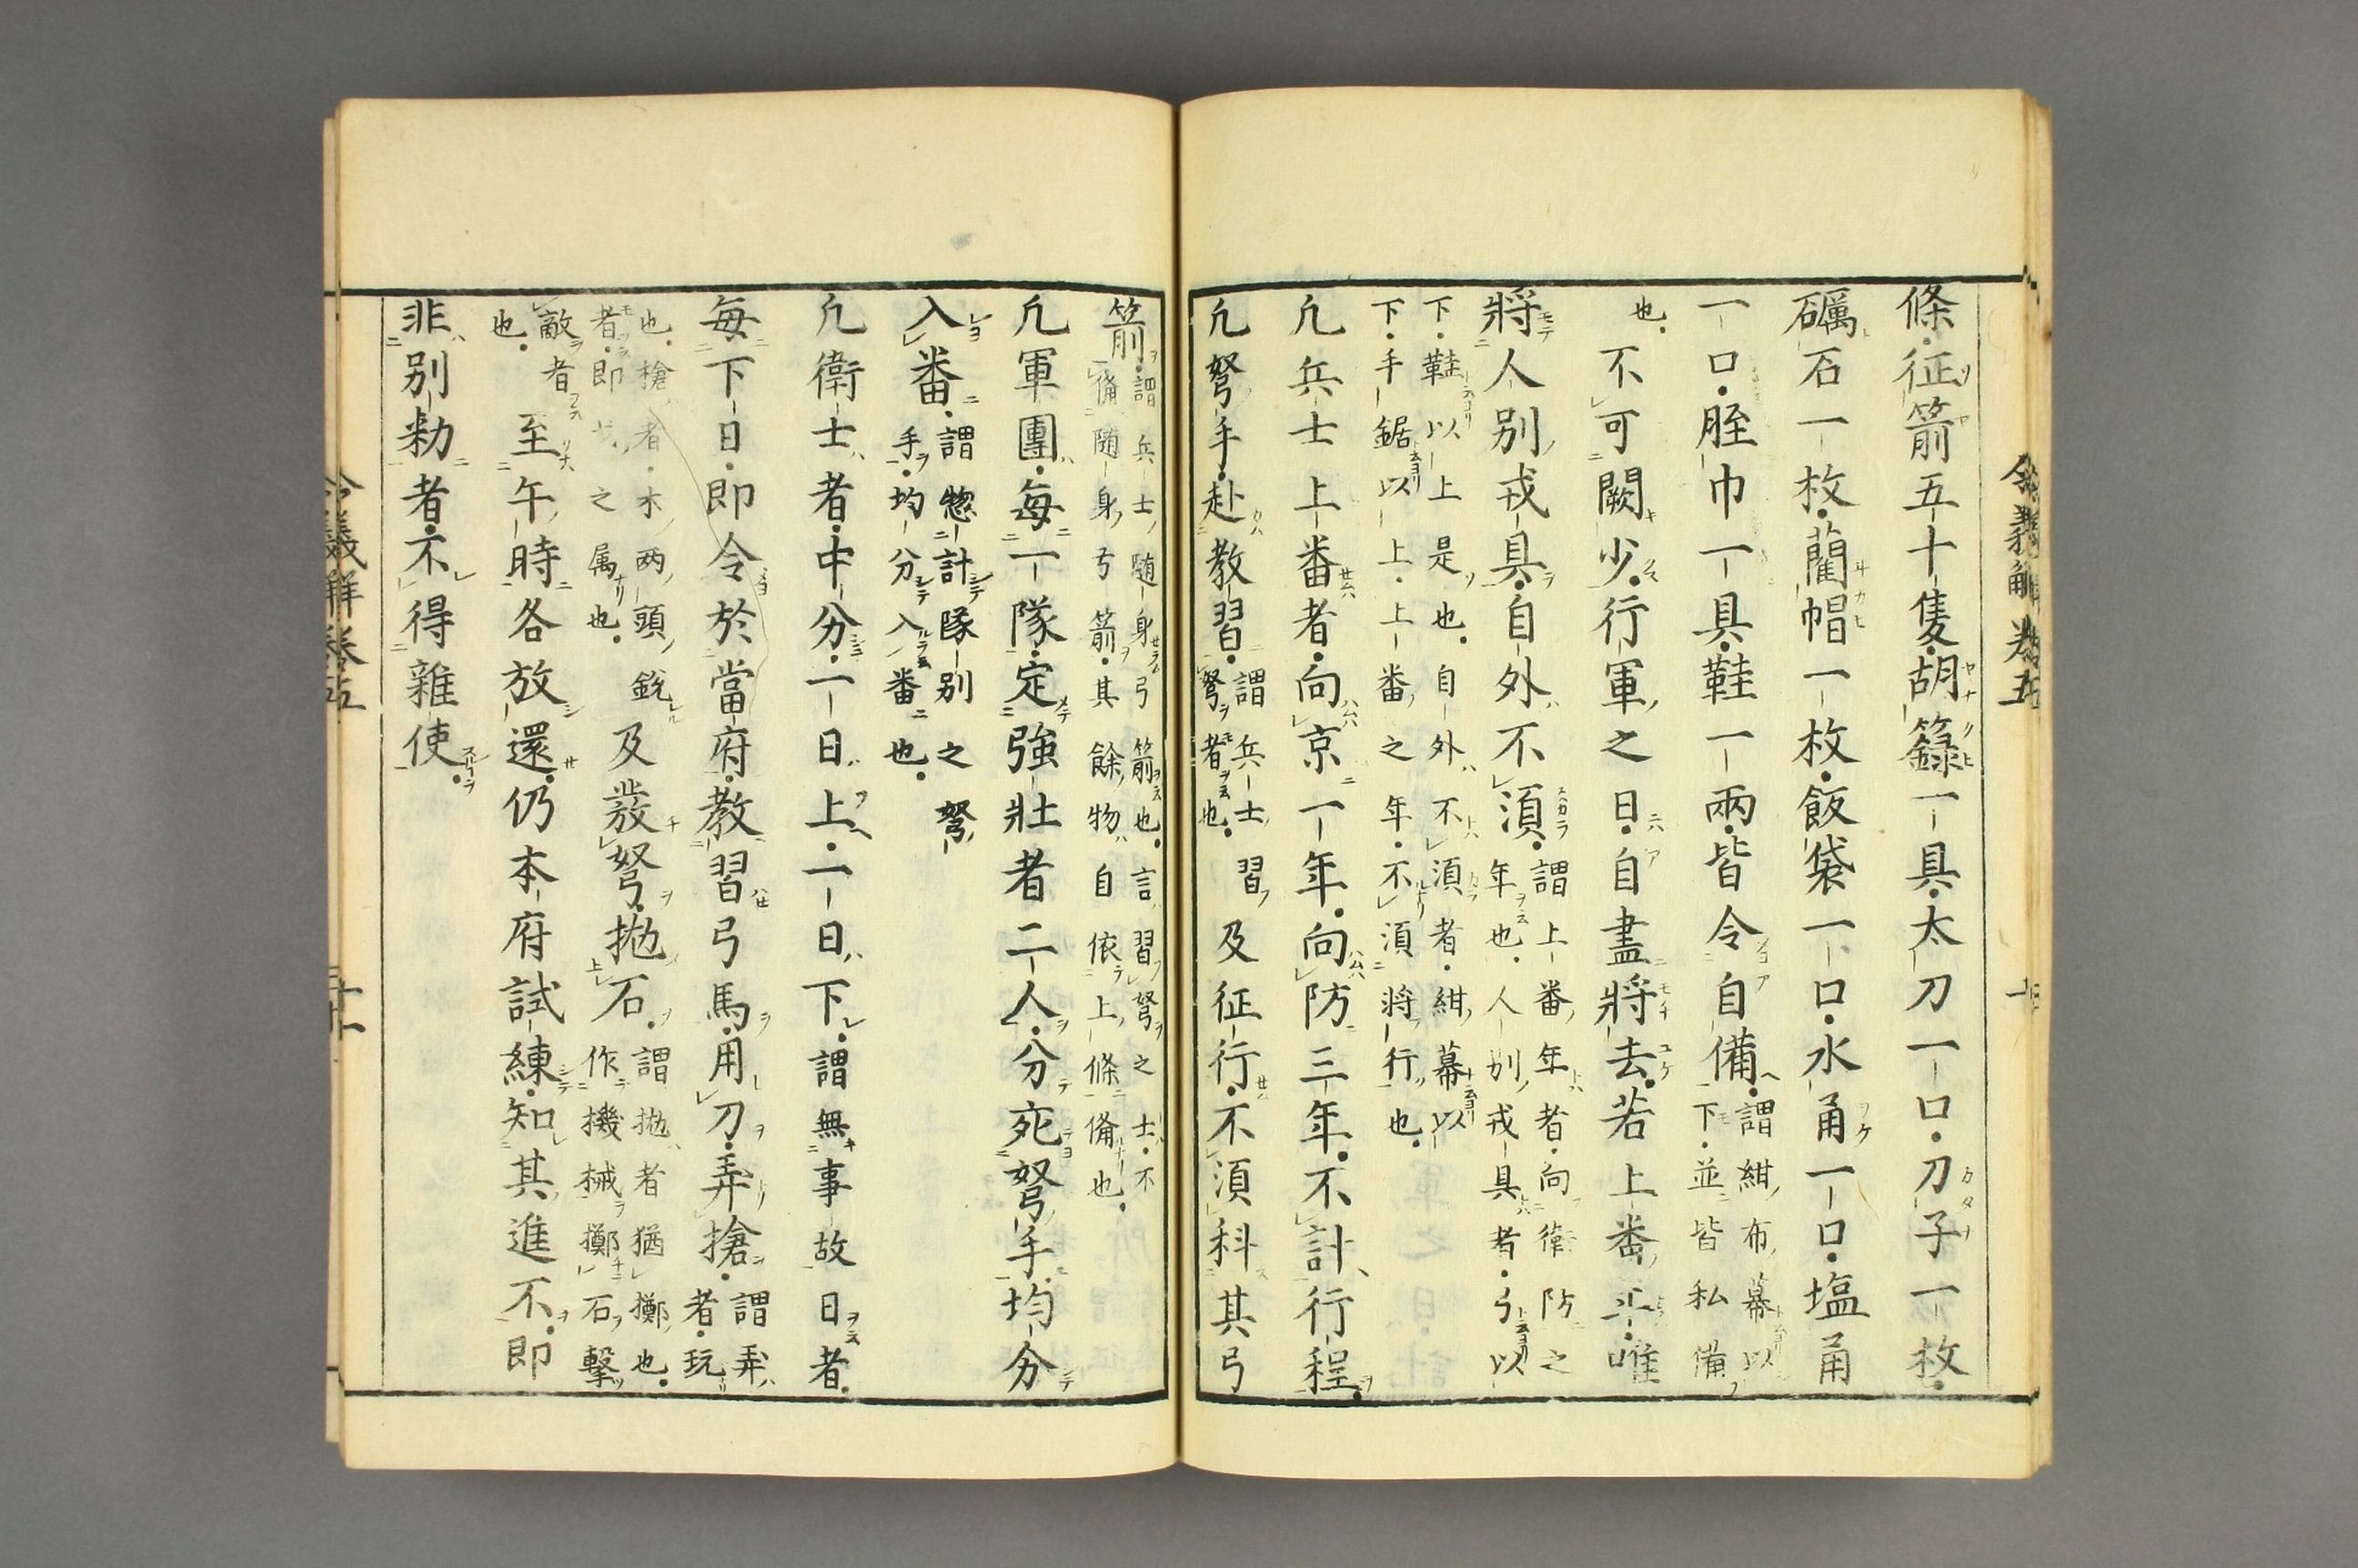 條征箭五十隻胡籙一具太刀一口刀子一枚
礪石一枚藺帽一枚飯袋一口水甬一口塩甬
一口脛巾一具鞋一兩皆令自備謂紺布幕以
下並皆私備
也不可闕少行軍之日自盡將去若上番年唯
將人別戎具自外不湏謂上番年者向衛防之
年也人別戎具者弓以
下鞋以上是也自外不湏者紺幕以
下手鋸以上上番之年不湏將行也
凢兵士上番者向京一年向防三年不計行程
凢弩手赴教習謂兵士習
弩者也及征行不湏科其弓
箭謂兵士随身弓箭也言習弩之士不
備随身弓箭其餘物自依上條備也
凢軍團每一隊定強壯者二人分宛弩手均分
入番謂惣計隊別之弩
手均分入番也
凢衛士者中分一日上一日下謂無事故日者
每下日即令於當府教習弓馬用刀弄搶謂弄
者玩
也搶者木两頭銳
者即戈之属也及發弩抛石謂抛者猶擲也
作機械擲石擊
敵者
也至午時各放還仍本府試練知其進不即
非別勑者不得雜使
令義解卷五
令義解卷五